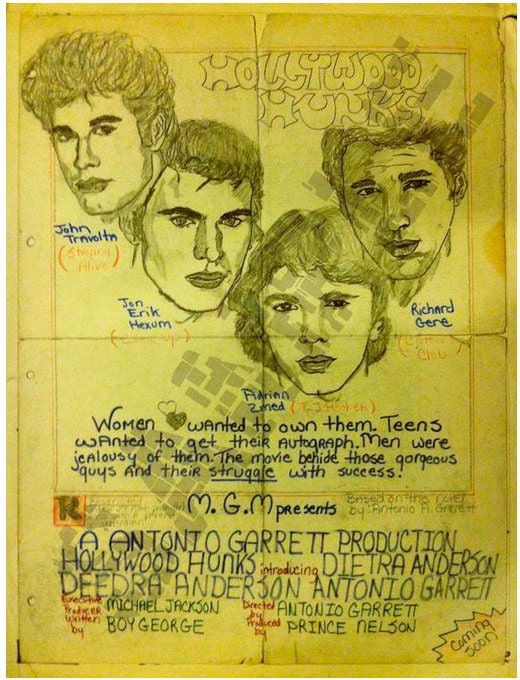 HOLLYWOOD
HUNKS
John
Travolta
(Staying
Alive)
Jon
Erik
Hexum
Richard
Gere
Club)
Adrian
Zmed (T.J Hooker)
Women wanted to own them. Teens
wanted to get their autograph. Men were
jealousy of them. The movie behide those gorgeous
guys and their struggle with success!
R
M. G. M presents
Based on the novel
by: Antonio A. Garrett
A ANTONIO GARRETT PRODUCTION
HOLLYWOOD HUNKS introducing DIETRA ANDERSON
DEEDRA ANDERSON ANTONIO GARRETT
Executive
Producer MICHAEL JACKSON
Written
by BOY GEORGE
Directed
by ANTONIO GARRETT
Produced
by PRINCE NELSON
Coming
Soon